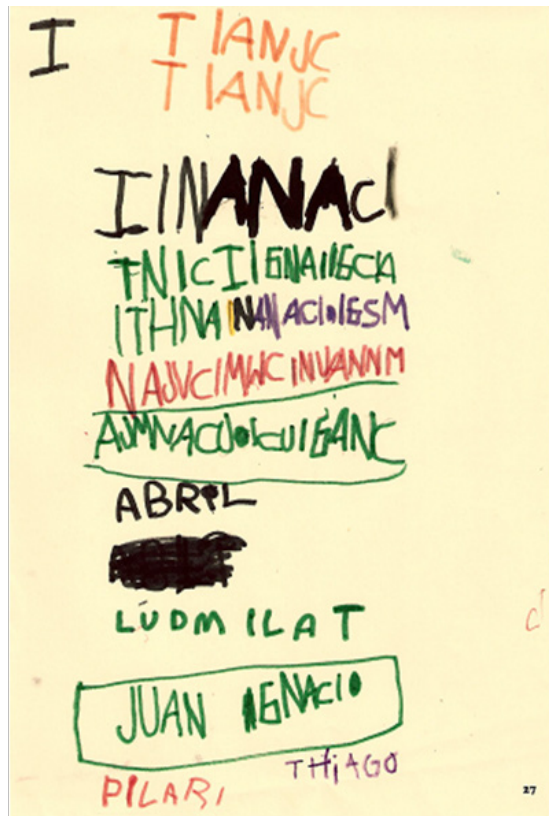 I
TIANJC
TIANJC
IINANACI
TNICIIGNAIIGCIA
ITHNAINANACIOIGSM
NAJVCIMWCINVANNM
AJMNACUOICUIGANC
ABRIL
LUDMILAT
JUAN IGNACIO
THiAGO
PILARI
27